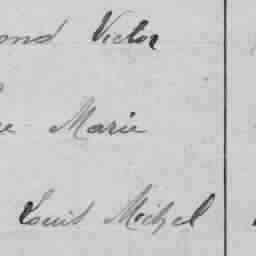 ond Victor
Marie
Louis Michel